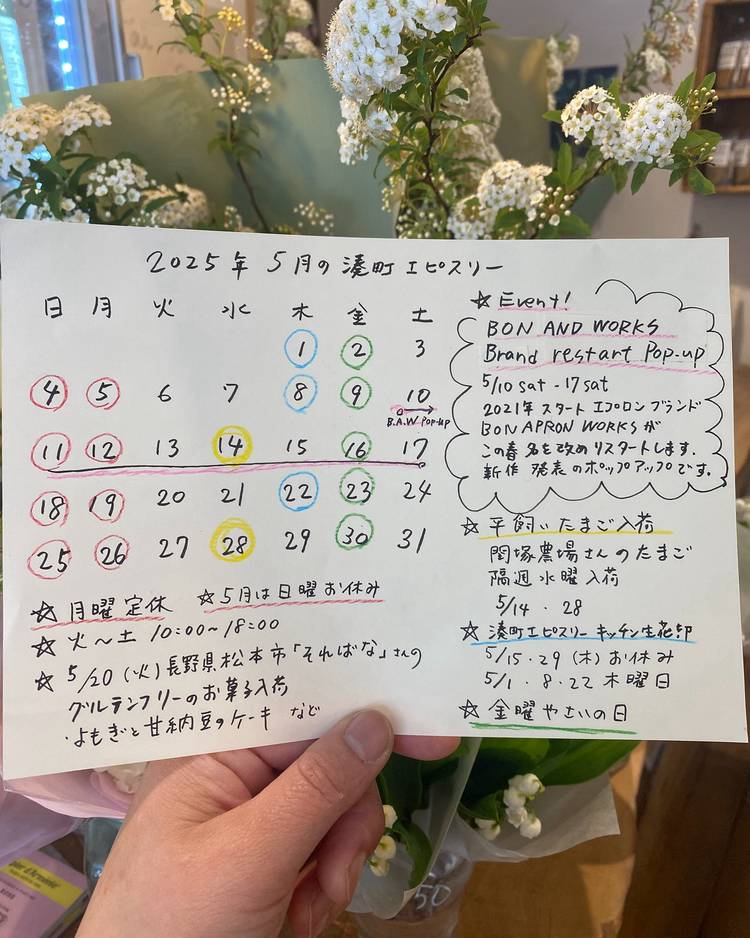 2025年 5月の湊町エピスリー
日 月 火 水 木 金 土
1 2 3
4 5 6 7 8 9 10
B.A.W POP-UP
11 12 13 14 15 16 17
18 19 20 21 22 23 24
25 26 27 28 29 30 31
☆月曜定休 ☆5月は日曜お休み
☆火～土 10:00～18:00
☆5/20(火)長野県松本市「そればな」さんの
グルテンフリーのお菓子入荷
・よもぎと甘納豆のケーキ など
☆Event!
BON AND WORKS
Brand restart Pop-up
5/10 sat - 17 sat
2021年スタートエプロンブランド
BON APRON WORKSが
この春名を改めリスタートします.
新作発表のポップアップです.
☆平飼いたまご入荷
関塚農場さんのたまご
隔週水曜入荷
5/14 . 28
☆湊町エピスリーキッチン生花部
5/15.29(木)お休み
5/1.8.22 木曜日
☆金曜やさいの日
50